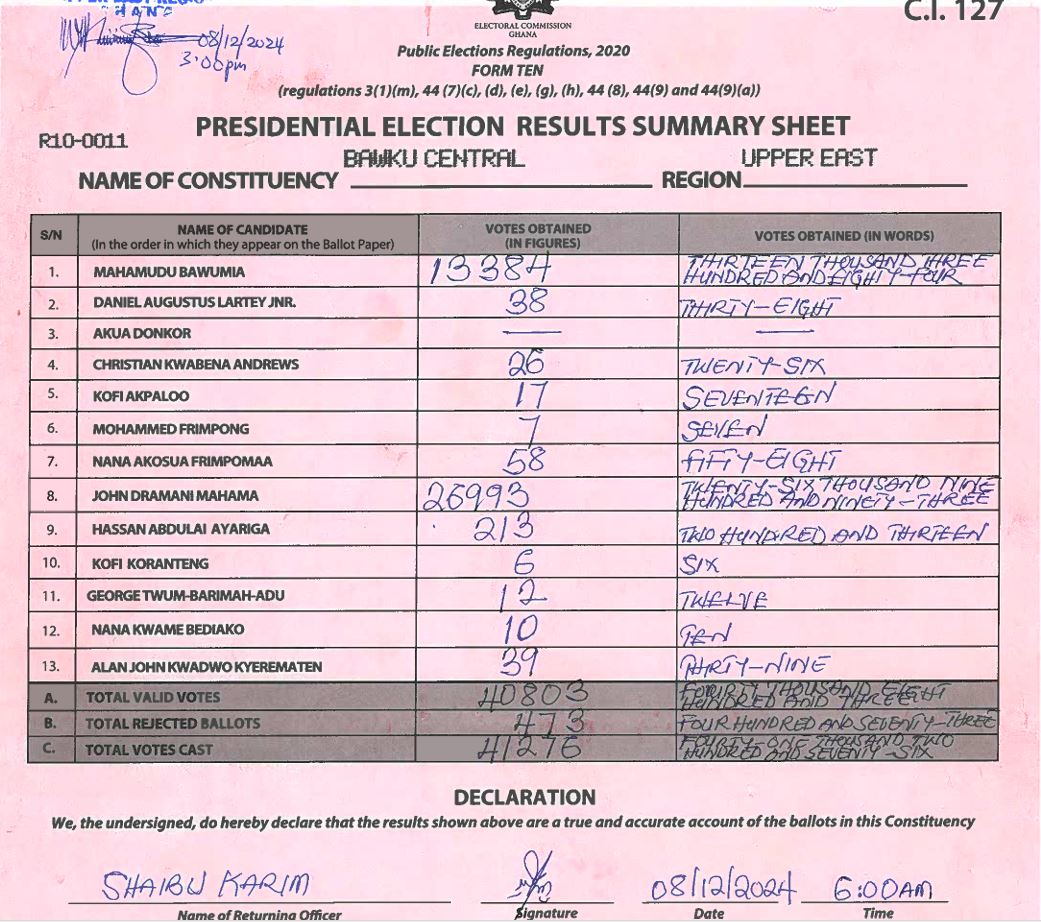 C.I. 127
08/12/2024
3:00pm
ELECTORAL COMMISSION
GHANA
Public Elections Regulations, 2020
FORM TEN
(regulations 3(1)(m), 44 (7)(c), (d), (e), (g), (h), 44 (8), 44(9) and 44(9)(a))
PRESIDENTIAL ELECTION RESULTS SUMMARY SHEET
R10-0011
BAWKU CENTRAL UPPER EAST
NAME OF CONSTITUENCY REGION
S/N NAME OF CANDIDATE (In the order in which they appear on the Ballot Paper) VOTES OBTAINED (IN FIGURES) VOTES OBTAINED (IN WORDS)
1. MAHAMUDU BAWUMIA 13384 THIRTEEN THOUSAND THREE HUNDRED AND EIGHTY-FOUR
2. DANIEL AUGUSTUS LARTEY JNR. 38 THIRTY-EIGHT
3. AKUA DONKOR — —
4. CHRISTIAN KWABENA ANDREWS 26 TWENTY-SIX
5. KOFI AKPALOO 17 SEVENTEEN
6. MOHAMMED FRIMPONG 7 SEVEN
7. NANA AKOSUA FRIMPOMAA 58 FIFTY-EIGHT
8. JOHN DRAMANI MAHAMA 26993 TWENTY-SIX THOUSAND NINE HUNDRED AND NINETY-THREE
9. HASSAN ABDULAI AYARIGA 213 TWO HUNDRED AND THIRTEEN
10. KOFI KORANTENG 6 SIX
11. GEORGE TWUM-BARIMAH-ADU 12 TWELVE
12. NANA KWAME BEDIAKO 10 TEN
13. ALAN JOHN KWADWO KYEREMATEN 39 THIRTY-NINE
A. TOTAL VALID VOTES 40803 FOURTY THOUSAND EIGHT HUNDRED AND THREE
B. TOTAL REJECTED BALLOTS 473 FOUR HUNDRED AND SEVENTY-THREE
C. TOTAL VOTES CAST 41276 FOURTY-ONE THOUSAND TWO HUNDRED AND SEVENTY-SIX
DECLARATION
We, the undersigned, do hereby declare that the results shown above are a true and accurate account of the ballots in this Constituency
SHAIBU KARIM 08/12/2024 6:00AM
Name of Returning Officer Signature Date Time